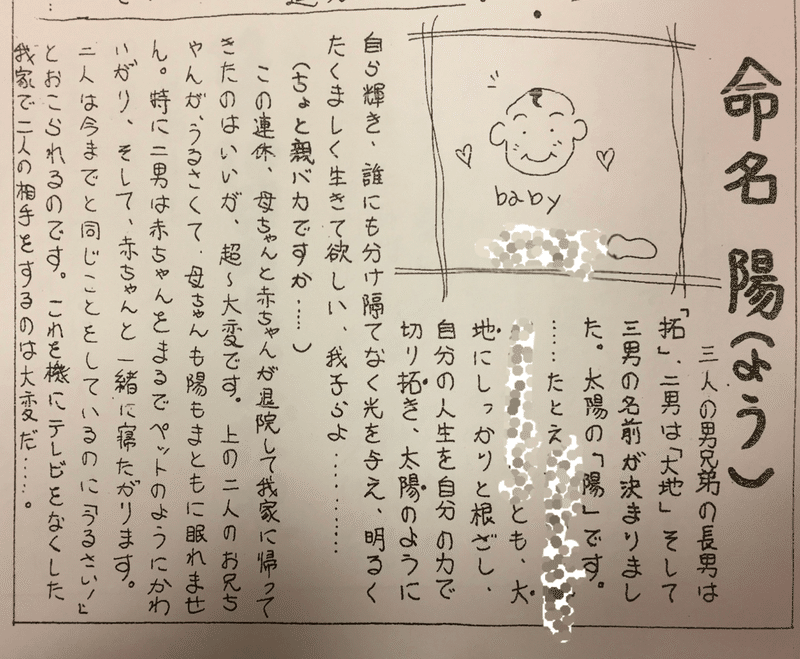 命名 陽（よう）
三人の男兄弟の長男は
「拓」、二男は「大地」そして
三男の名前が決まりまし
た。太陽の「陽」です。
……たとえ
とも、大
地にしっかりと根ざし、
自分の人生を自分の力で
切り拓き、太陽のように
自ら輝き、誰にも分け隔てなく光を与え、明るく
たくましく生きて欲しい、我子らよ………
（ちょと親バカですか……）
この連休、母ちゃんと赤ちゃんが退院して我家に帰って
きたのはいいが、超〜大変です。上の二人のお兄ち
ゃんが、うるさくて、母ちゃんも陽もまともに眠れませ
ん。特に二男は赤ちゃんをまるでペットのようにかわ
いがり、そして、赤ちゃんと一緒に寝たがります。
二人は今までと同じことをしているのに「うるさい！」
とおこられるのです。これを機にテレビをなくした
我家で二人の相手をするのは大変だ……。
baby